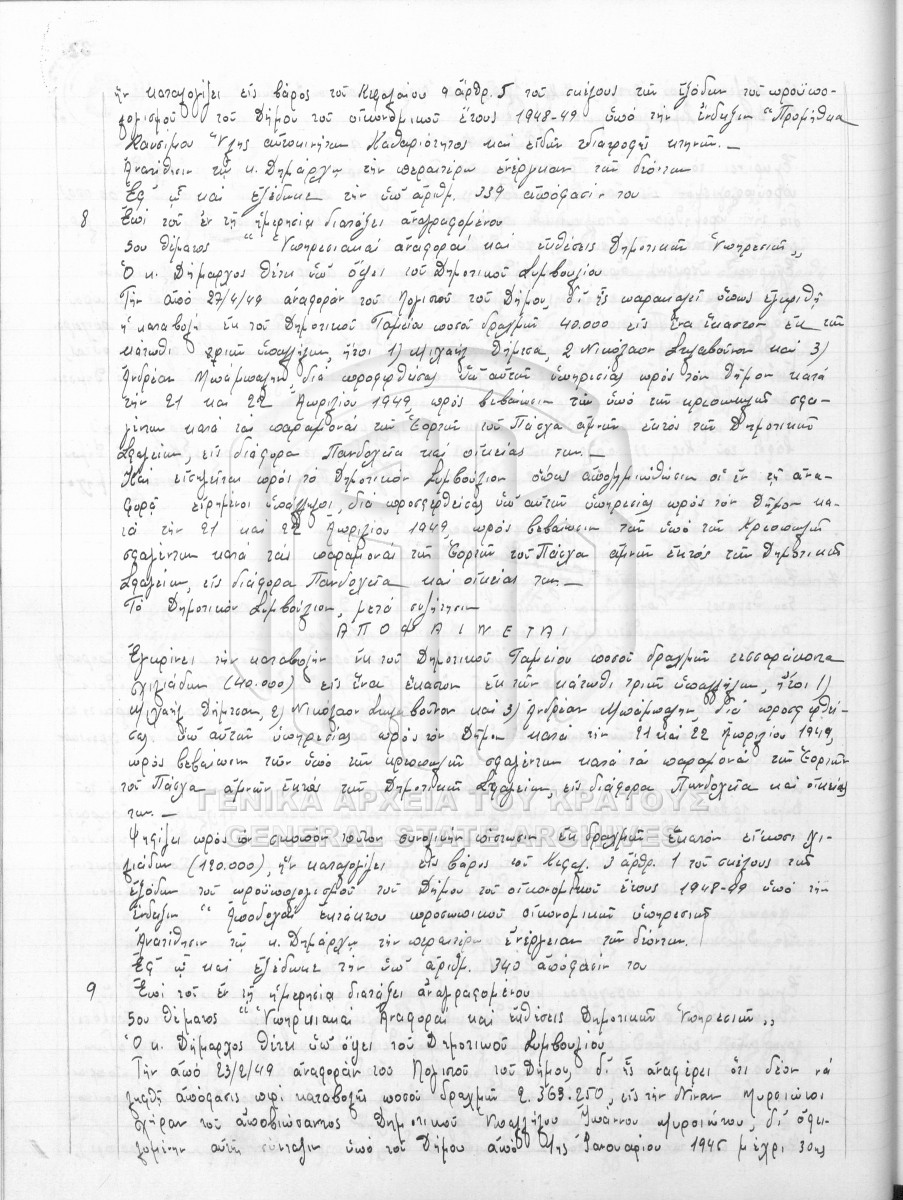 ἣν καταλογίζει εἰς βάρος τοῦ Κεφαλαίου 9 ἄρθρ. 5 τοῦ σκέλους τῶν ἐξόδων τοῦ προϋπο-
λογισμοῦ τοῦ Δήμου τοῦ οἰκονομικοῦ ἔτους 1948-49 ὑπό τήν ἔνδειξιν "Προμήθεια
Καυσίμου Ὕλης αὐτοκινήτων Καθαριότητος καί εἰδῶν διατροφῆς κτηνῶν._
Ἀνατίθησιν τῷ κ. Δημάρχῳ τήν περαιτέρω ἐνέργειαν τῶν δεόντων
Ἐφ' ᾧ καί ἐξέδωκε τήν ὑπ' ἀριθμ. 339 ἀπόφασίν του
8 Ἐπί τοῦ ἐν τῇ ἡμερησίᾳ διατάξει ἀναγραφομένου
5ου θέματος "Ὑπηρεσιακαί ἀναφοραί καί ἐκθέσεις Δημοτικῶν Ὑπηρεσιῶν,,
Ὁ κ. Δήμαρχος θέτει ὑπ' ὄψει τοῦ Δημοτικοῦ Συμβουλίου
Τήν ἀπό 27/4/49 ἀναφοράν τοῦ Λογιστοῦ τοῦ Δήμου, δι' ἧς παρακαλεῖ ὅπως ἐγκριθῇ
ἡ καταβολή ἐκ τοῦ Δημοτικοῦ Ταμείου ποσοῦ δραχμῶν 40.000 εἰς ἕνα ἕκαστον ἐκ τῶν
κάτωθι τριῶν ὑπαλλήλων, ἤτοι 1) Μιχαήλ Δήμτσα, 2 Νικόλαον Σκλαβοῦνον καί 3)
Ἀνδρέαν Μπάμπαλην, διά προσφερθείσας ὑπ' αὐτῶν ὑπηρεσίας πρός τόν Δῆμον κατά
τήν 21 καί 22 Ἀπριλίου 1949 πρός βεβαίωσιν τῶν ὑπό τῶν κρεοπωλῶν σφα-
γέντων κατά τάς παραμονάς τῶν Ἑορτῶν τοῦ Πάσχα ἀμνῶν ἐκτός τῶν Δημοτικῶν
Σφαγείων, εἰς διάφορα Πανδοχεῖα καί οἰκίας των._
Καί εἰσηγεῖται πρός τό Δημοτικόν Συμβούλιον ὅπως ἀποζημιωθῶσιν οἱ ἐν τῇ ἀνα-
φορᾷ εἰρημένοι ὑπάλληλοι, διά προσφερθείσας ὑπ' αὐτῶν ὑπηρεσίας πρός τόν Δῆμον κα-
τά τήν 21 καί 22 Ἀπριλίου 1949, πρός βεβαίωσιν τῶν ὑπό τῶν Κρεοπωλῶν
σφαγέντων κατά τάς παραμονάς τῶν Ἑορτῶν τοῦ Πάσχα ἀμνῶν ἐκτός τῶν Δημοτικῶν
Σφαγείων, εἰς διάφορα Πανδοχεῖα καί οἰκίας των._
Τό Δημοτικόν Συμβούλιον, μετά συζήτησιν
ΑΠΟΦΑΙΝΕΤΑΙ
Ἐγκρίνει τήν καταβολήν ἐκ τοῦ Δημοτικοῦ Ταμείου ποσοῦ δραχμῶν τεσσαράκοντα
χιλιάδων (40.000) εἰς ἕνα ἕκαστον ἐκ τῶν κάτωθι τριῶν ὑπαλλήλων, ἤτοι 1)
Μιχαήλ Δήμτσαν, 2) Νικόλαον Σκλαβοῦνον καί 3) Ἀνδρέαν Μπάμπαλην, διά προσφερθεί-
σας ὑπ' αὐτῶν ὑπηρεσίας πρός τόν Δῆμον κατά τήν 21 καί 22 Ἀπριλίου 1949,
πρός βεβαίωσιν τῶν ὑπό τῶν κρεοπωλῶν σφαγέντων κατά τάς παραμονάς τῶν Ἑορτῶν
τοῦ Πάσχα ἀμνῶν ἐκτός τῶν Δημοτικῶν Σφαγείων, εἰς διάφορα Πανδοχεῖα καί οἰκίας
των._
ΓΕΝΙΚΑ ΑΡΧΕΙΑ ΤΟΥ ΚΡΑΤΟΥΣ
GENERAL STATE ARCHIVES
Ψηφίζει πρός τόν σκοπόν τοῦτον συνολικήν πίστωσιν ἐκ δραχμῶν ἑκατόν εἴκοσι χι-
λιάδων (120.000), ἣν καταλογίζει εἰς βάρος τοῦ Κεφαλ. 3 ἄρθρ. 1 τοῦ σκέλους τῶν
ἐξόδων τοῦ προϋπολογισμοῦ τοῦ Δήμου τοῦ οἰκονομικοῦ ἔτους 1948-49 ὑπό τήν
ἔνδειξιν "Ἀποδοχαί ἐκτάκτου προσωπικοῦ οἰκονομικῶν ὑπηρεσιῶν
Ἀνατίθησιν τῷ κ. Δημάρχῳ τήν περαιτέρω ἐνέργειαν τῶν δεόντων.
Ἐφ' ᾧ καί ἐξέδωκε τήν ὑπ' ἀριθμ. 340 ἀπόφασίν του
9 Ἐπί τοῦ ἐν τῇ ἡμερησίᾳ διατάξει ἀναγραφομένου
5ου θέματος "Ὑπηρεσιακαί Ἀναφοραί καί ἐκθέσεις Δημοτικῶν Ὑπηρεσιῶν,,
Ὁ κ. Δήμαρχος θέτει ὑπ' ὄψει τοῦ Δημοτικοῦ Συμβουλίου
Τήν ἀπό 23/2/49 ἀναφοράν τοῦ Λογιστοῦ τοῦ Δήμου, δι' ἧς ἀναφέρει ὅτι δέον νά
ληφθῇ ἀπόφασις περί καταβολῆς ποσοῦ δραχμῶν 2.363.250, εἰς τήν Νίναν
χήραν τοῦ ἀποβιώσαντος Δημοτικοῦ Ὑπαλλήλου Ἰωάννου, δι' ὀφει-
λομένην αὐτῇ σύνταξιν ὑπό τοῦ Δήμου ἀπό 1ης Ἰανουαρίου 1945 μέχρι 30ης